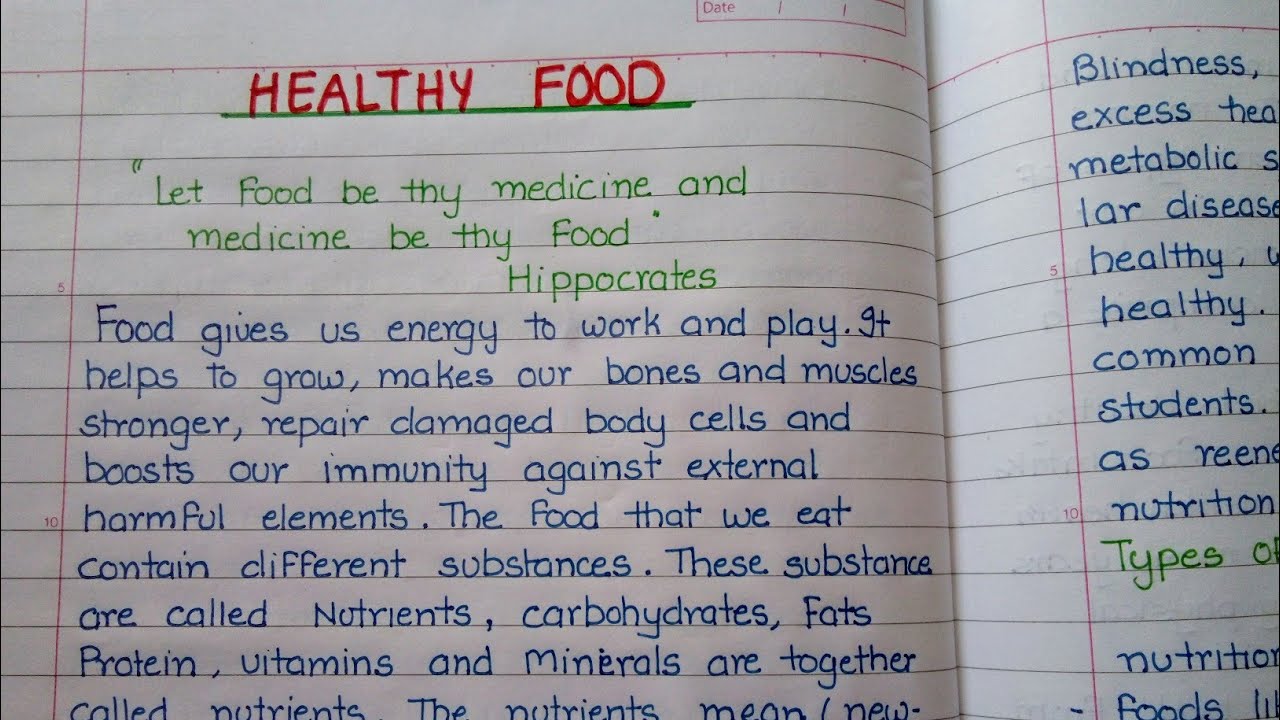 Date / /
HEALTHY FOOD
"Let Food be thy medicine and
medicine be thy Food"
Hippocrates
5
Food gives us energy to work and play. It
helps to grow, makes our bones and muscles
stronger, repair damaged body cells and
boosts our immunity against external
10 harmful elements. The food that we eat
contain different substances. These substance
are called Nutrients, carbohydrates, Fats
Protein, vitamins and Minerals are together
called nutrients. The nutrients mean (new-
Blindness,
excess hea
metabolic s
lar disease
5 healthy,
healthy.
common
students.
as reene
10 nutrition
Types of
nutrition
- foods li